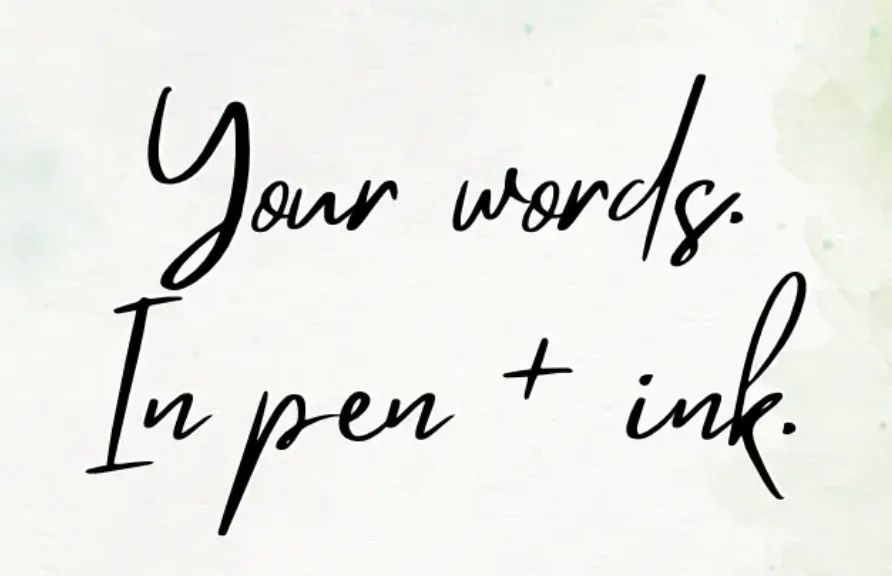 Your words.
In pen + ink.